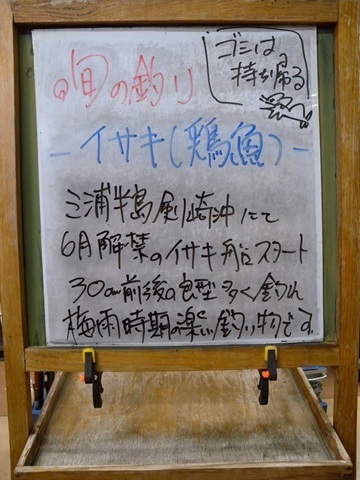 旬の釣り
ゴミは、
持ち帰る
－イサキ(鶏魚)－
三浦半島剣崎沖にて
6月解禁のイサキ船スタート
30cm前後の良型多く釣れ
梅雨時期の楽しい釣り物です。